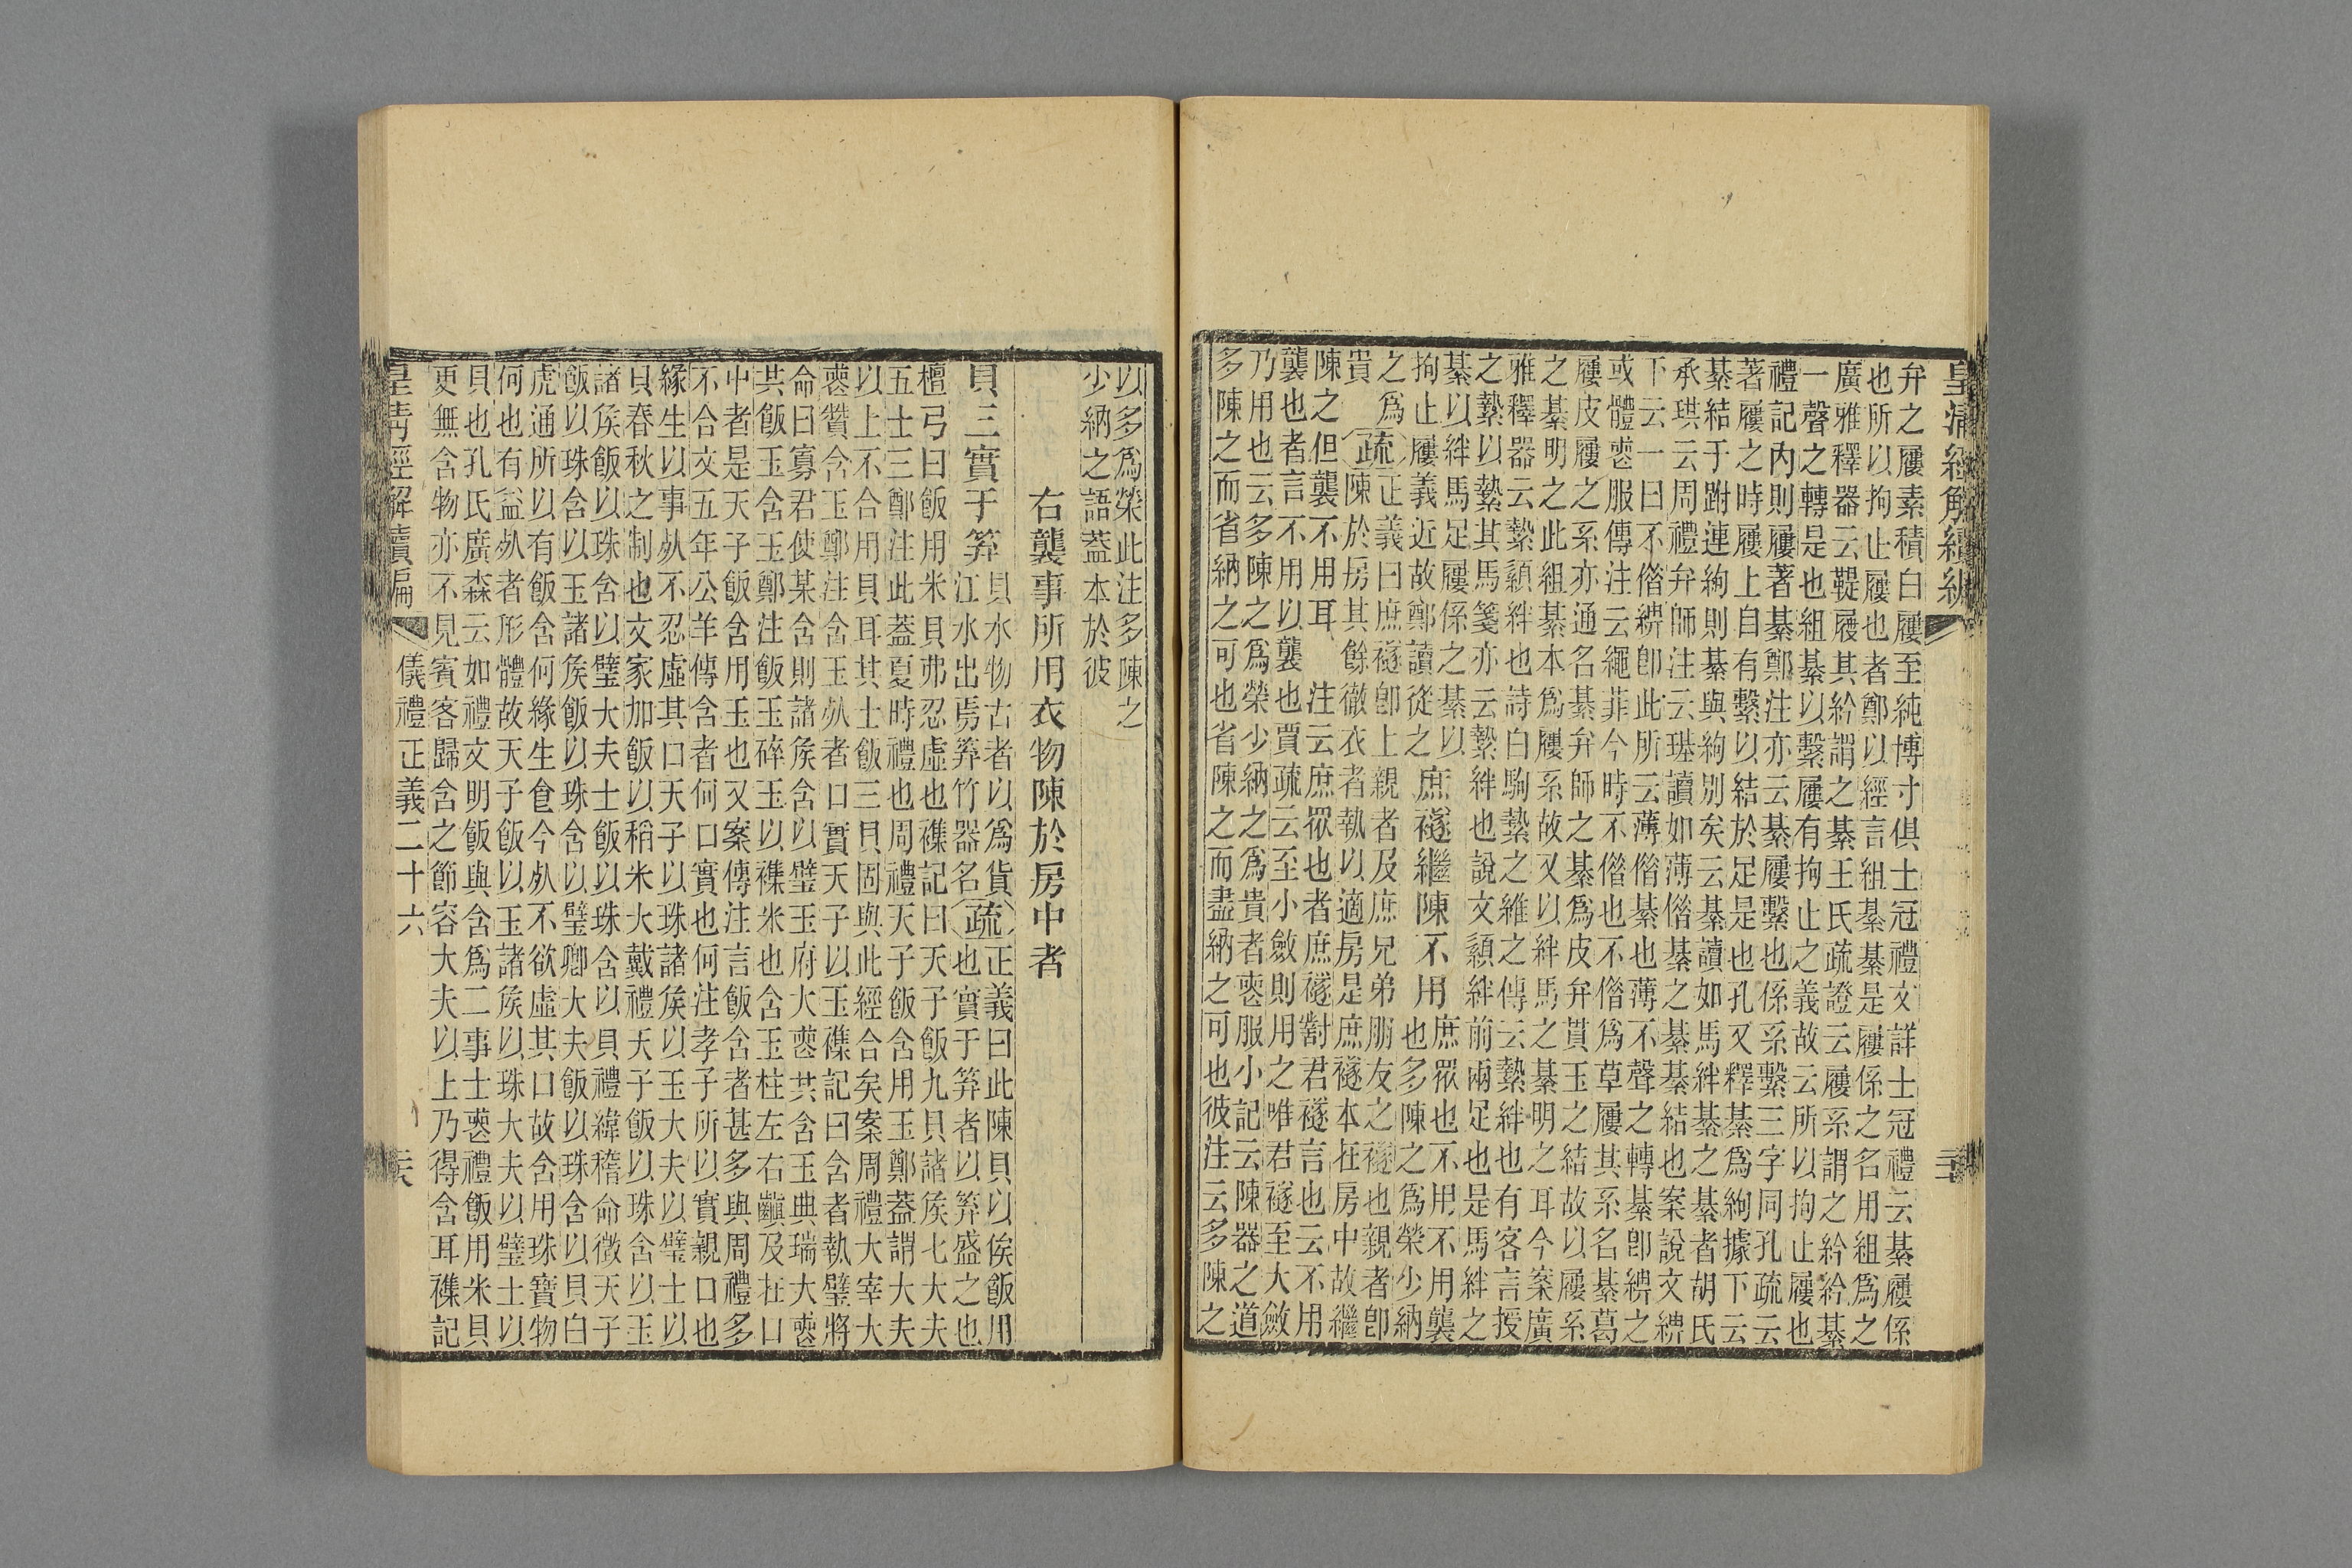 皇清經解續編
弁之屨素積白屨至純博寸俱士冠禮文詳士冠禮云綦屨係
也所以拘止屨也者鄭以經言組綦綦是屨係之名用組爲之
廣雅釋器云鞮屨其紟謂之綦王氏疏證云屨系謂之紟紟綦
一聲之轉是也組綦以繫屨有拘止之義故云所以拘止屨也
禮記內則屨著綦鄭注亦云綦屨繫也係系繫三字同孔疏云
著屨之時屨上自有繫以結於足是也孔又釋綦爲絇據下云
綦結于跗連絇則綦與絇別矣云綦讀如馬絆綦之綦者胡氏
承珙云周禮弁師注云琪讀如薄偕綦之綦綦結也案說文綥
下云一曰不偕綥卽此所云薄偕綦也薄不聲之轉綦卽綥之
或體喪服傳注云繩菲今時不偕也不偕爲草屨其系名綦葛
屨皮屨之系亦通名綦弁師之綦爲皮弁貫玉之結故以屨系
之綦明之此組綦本爲屨系故又以絆馬之綦明之耳今案廣
雅釋器云縶䋻絆也詩白駒縶之維之傳云縶絆也有客言授
之縶以縶其馬箋亦云縶絆也說文䋻絆前兩足也是馬絆之
綦以絆馬足屨係之綦以
拘止屨義近故鄭讀從之
庶襚繼陳不用
庶眾也不用不用襲
也多陳之爲榮少納
之爲
貴
疏
正義曰庶襚卽上親者及庶兄弟朋友之襚也親者卽
陳於房其餘徹衣者執以適房是庶襚本在房中故繼
陳之但襲不用耳 注云庶眾也者庶襚對君襚言也云不用
襲也者言不用以襲也賈疏云至小斂則用之唯君襚至大斂
乃用也云多陳之爲榮少納之爲貴者喪服小記云陳器之道
多陳之而省納之可也省陳之而盡納之可也彼注云多陳之
以多爲榮此注多陳之
少納之語葢本於彼
右襲事所用衣物陳於房中者
貝三實于笲
貝水物古者以爲貨
江水出焉笲竹器名
疏
正義曰此陳貝以俟飯用
也實于笲者以笲盛之也
檀弓曰飯用米貝弗忍虛也襍記曰天子飯九貝諸矦七大夫
五士三鄭注此葢夏時禮也周禮天子飯含用玉鄭葢謂大夫
以上不合用貝耳其士飯三貝固與此經合矣案周禮大宰大
喪贊含玉鄭注含玉𣦸者口實天子以玉襍記曰含者執璧將
命曰寡君使某含則諸矦含以璧玉府大喪共含玉典瑞大喪
共飯玉含玉鄭注飯玉碎玉以襍米也含玉柱左右齻及在口
中者是天子飯含用玉也又案傳注言飯含者甚多與周禮多
不合文五年公羊傳含者何口實也何注孝子所以實親口也
緣生以事𣦸不忍虛其口天子以珠諸矦以玉大夫以璧士以
貝春秋之制也文家加飯以稻米大戴禮天子飯以珠含以玉
諸矦飯以珠含以璧大夫士飯以珠含以貝禮緯稽命徵天子
飯以珠含以玉諸矦飯以珠含以璧卿大夫飯以珠含以貝白
虎通所以有飯含何緣生食今𣦸不欲虛其口故含用珠寶物
何也有益𣦸者形體故天子飯以玉諸矦以珠大夫以璧士以
貝也孔氏廣森云如禮文明飯與含爲二事士喪禮飯用米貝
更無含物亦不見賓客歸含之節容大夫以上乃得含耳襍記
皇清經解續編 儀禮正義二十六